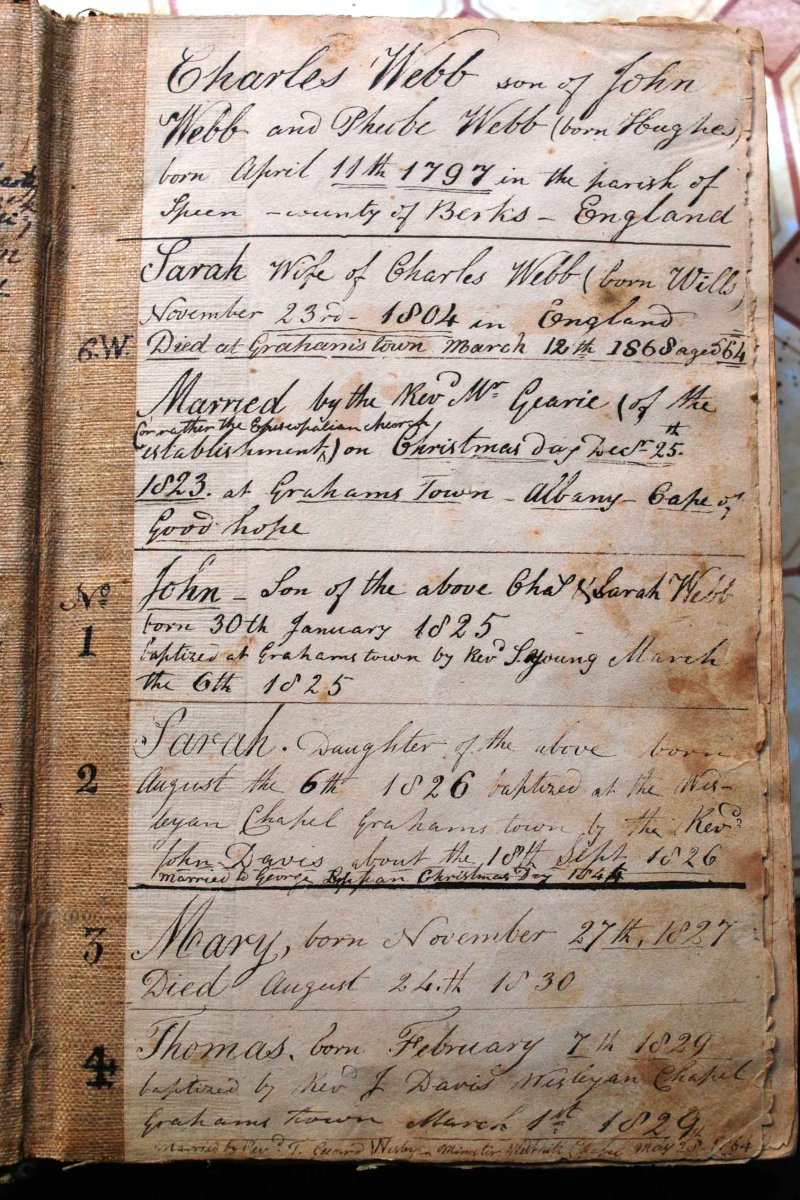 Charles Webb son of John
Webb and Phebe Webb (born Hughes)
born April 11th 1797 in the parish of
Speen - county of Berks - England
Sarah Wife of Charles Webb (born Wills)
November 23rd - 1804 in England
6.W. Died at Grahamstown March 12th 1868 aged 64
Married by the Revd Mr Gearie (of the
(or rather the Episcopalian church
establishment) on Christmas day Decr 25th
1823. at Grahams Town - Albany - Cape of
Good hope
No 1 John - Son of the above Chas & Sarah Webb
born 30th January 1825
baptized at Grahamstown by Revd S. Young March
the 6th 1825
2 Sarah. Daughter of the above born
August the 6th 1826 baptized at the Wes-
leyan Chapel Grahamstown by the Revd
John Davis about the 18th Sept 1826
married to George Christmas Day
3 Mary, born November 27th, 1827
Died August 24th 1830
4 Thomas. born February 7th 1829
baptized by Revd J Davis Wesleyan Chapel
Grahams Town March 1st 1829
Married by Revd T. Wesleyan Minister Chapel May 1864